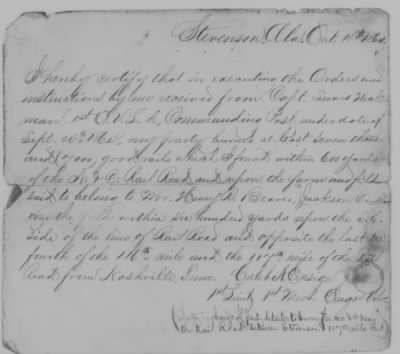 Stevenson, Ala. Oct.
I hereby certify that in executing the Orders and
instructions by me received from Capt. Lewis
man, 1st O.V.L.A, Commanding Post, under date of
Sept. my party burned at least seven thous
and good rails which I found within 600 yards
of the N. & C. Rail Road and upon the farm and fields
said to belong to Mr. Henry Beaver, Jackson Co.
the field within six hundred yards upon the
side of the line of Rail Road and opposite the last
fourth of the 116th mile and the 117th mile of the Rail
Road from Nashville, Tenn. Caleb A Ensign
1st Lieut 1st Mich. Engrs
the Rail Road between Stevenson 117 mile Post)